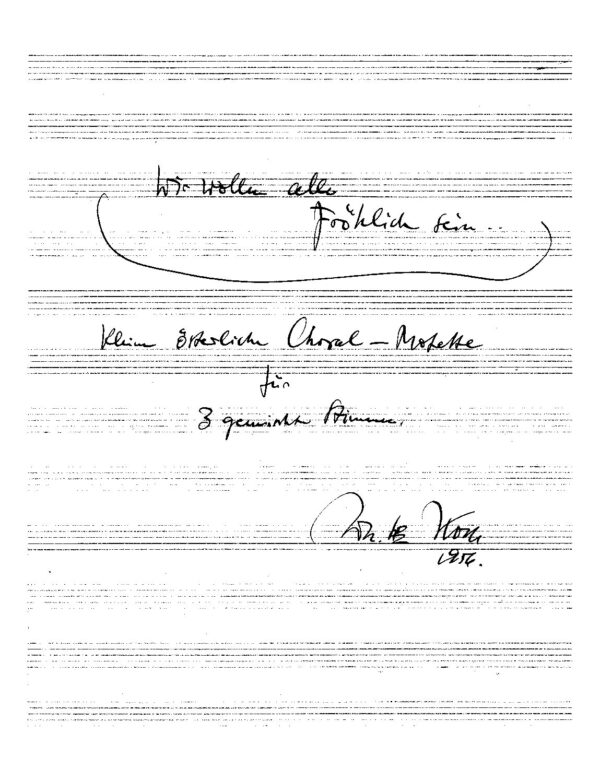 Wir wollen alle
fröhlich sein..
Kleine österliche Choral – Motette
für
3 gemischte Stimmen.
Joh. H. E. Koch
1956.